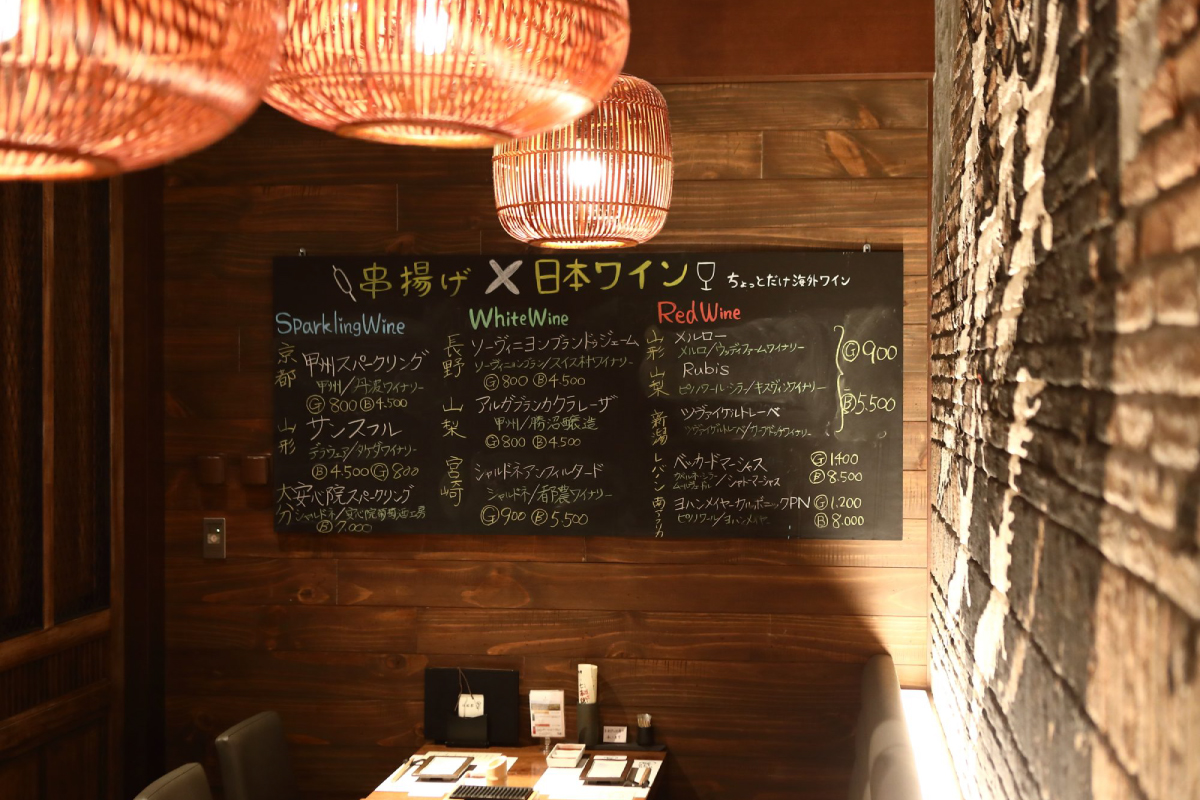 串揚げ × 日本ワイン ちょっとだけ海外ワイン
SparklingWine
京都
甲州スパークリング
甲州/丹波ワイナリー
Ⓖ800 Ⓑ4.500
山形
サンスフル
デラウェア/タケダワイナリー
Ⓑ4.500 Ⓖ800
大分
安心院スパークリング
シャルドネ/安心院葡萄酒工房
Ⓑ7.000
WhiteWine
長野
ソーヴィニヨンブランドゥジェーム
ソーヴィニヨンブラン/スイス村ワイナリー
Ⓖ800 Ⓑ4.500
山梨
アルガブランカクラレーザ
甲州/勝沼醸造
Ⓖ800 Ⓑ4.500
宮崎
シャルドネアンフィルタード
シャルドネ/都農ワイナリー
Ⓖ900 Ⓑ5.500
RedWine
山形
メルロー
メルロ/ウッディファームワイナリー
山梨
Rubis
ピノノワール・シラー/キスヴィンワイナリー
新潟
ツヴァイゲルトレーベ
ツヴァイゲルトレーベ/
Ⓖ900
Ⓑ5.500
レバノン
ベッカードマージャス
シャトーマージャス
Ⓖ1.400
Ⓑ8.500
南アフリカ
ヨハンメイヤーカルボニックPN
ピノノワール/ヨハンメイヤー
Ⓖ1.200
Ⓑ8.000